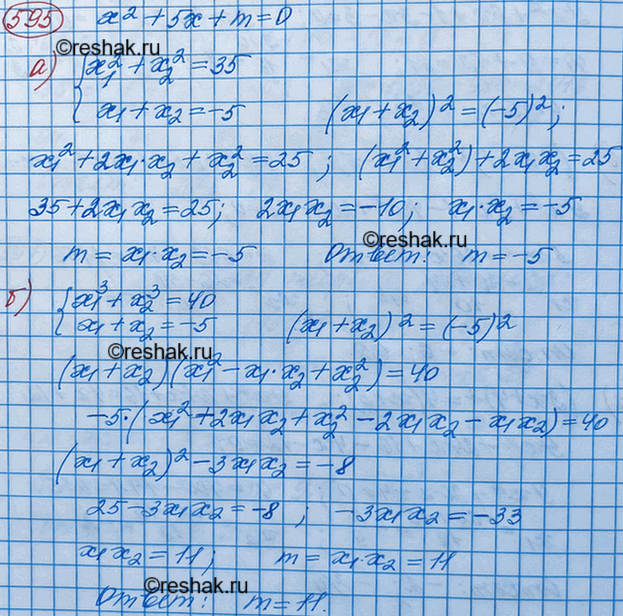 595 x² + 5x + m = 0
©reshak.ru
а) { x₁² + x₂² = 35
x₁ + x₂ = -5 (x₁ + x₂)² = (-5)²;
x₁² + 2x₁·x₂ + x₂² = 25; (x₁² + x₂²) + 2x₁x₂ = 25
35 + 2x₁x₂ = 25; 2x₁x₂ = -10; x₁·x₂ = -5
©reshak.ru
m = x₁·x₂ = -5 Ответ: m = -5
б) { x₁³ + x₂³ = 40
x₁ + x₂ = -5 (x₁ + x₂)² = (-5)²
©reshak.ru
(x₁ + x₂)(x₁² - x₁·x₂ + x₂²) = 40
-5·(x₁² + 2x₁x₂ + x₂² - 2x₁x₂ - x₁x₂) = 40
(x₁ + x₂)² - 3x₁x₂ = -8
25 - 3x₁x₂ = -8; -3x₁x₂ = -33
x₁x₂ = 11; m = x₁·x₂ = 11
©reshak.ru
Ответ: m = 11.